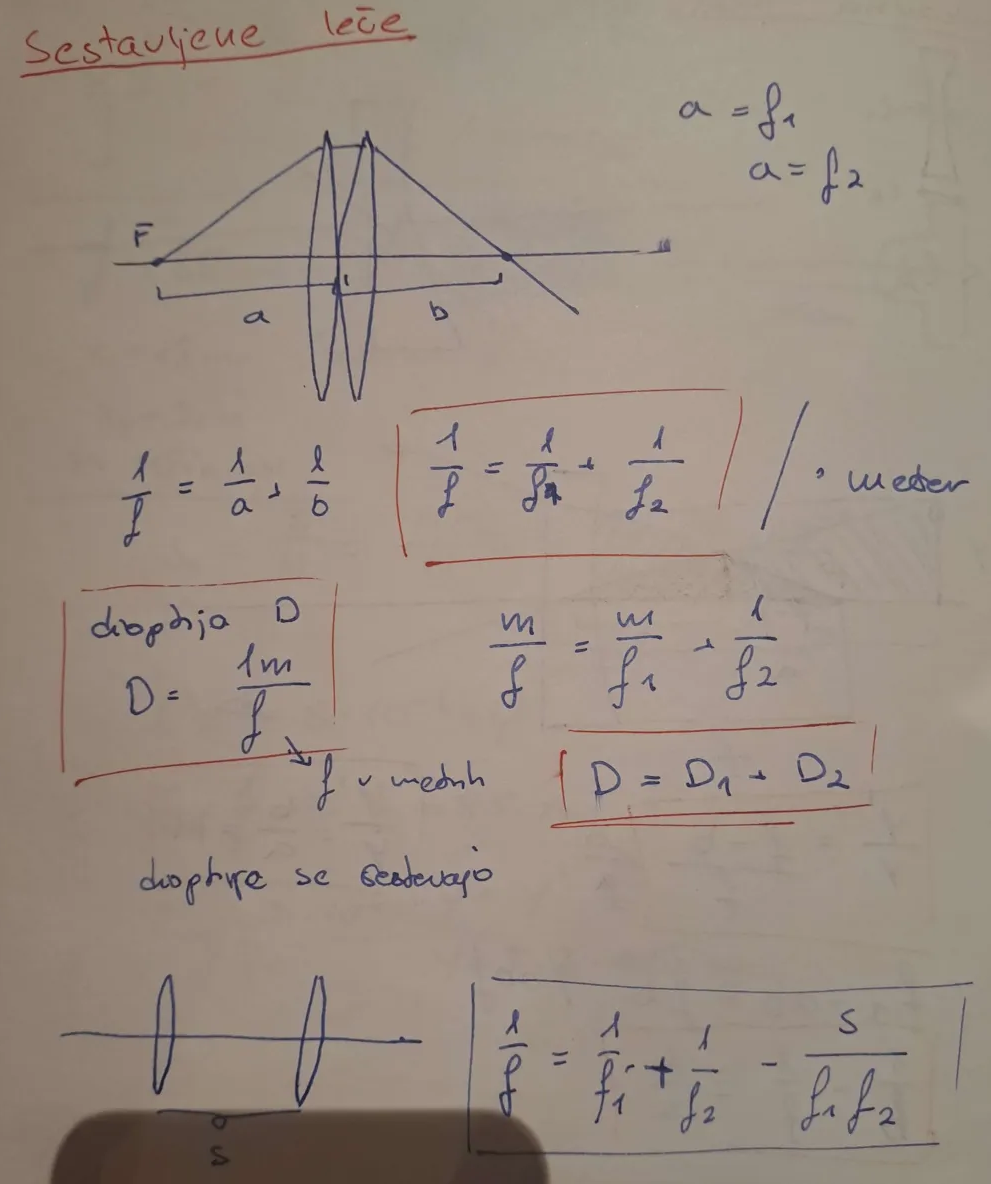 Sestavljene leče
a = f₁
a = f₂
F
a
b
1/f = 1/a + 1/b
1/f = 1/f₁ + 1/f₂ / · meter
dioptrija D
D = 1m/f
f v metrih
m/f = m/f₁ + 1/f₂
D = D₁ + D₂
dioptrije se seštevajo
s
1/f = 1/f₁ + 1/f₂ - s/(f₁ f₂)